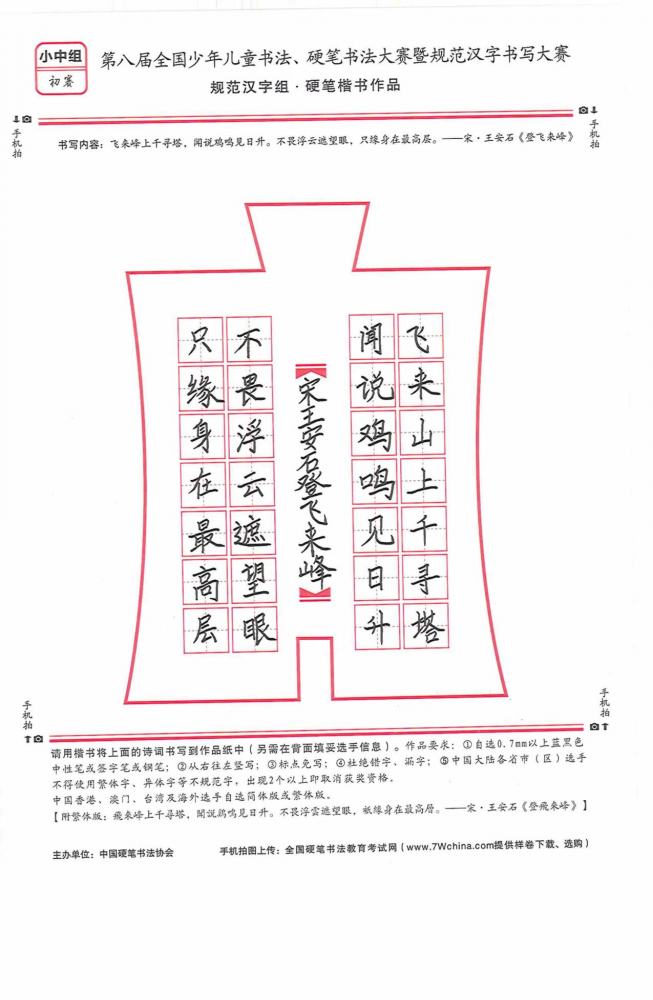 小中组
初赛
第八届全国少年儿童书法、硬笔书法大赛暨规范汉字书写大赛
规范汉字组·硬笔楷书作品
手机拍
手机拍
书写内容：飞来峰上千寻塔，闻说鸡鸣见日升。不畏浮云遮望眼，只缘身在最高层。——宋·王安石《登飞来峰》
飞来山上千寻塔
闻说鸡鸣见日升
宋王安石登飞来峰
不畏浮云遮望眼
只缘身在最高层
手机拍
手机拍
请用楷书将上面的诗词书写到作品纸中（另需在背面填妥选手信息）。作品要求：①自选0.7mm以上蓝黑色
中性笔或签字笔或钢笔；②从右往左竖写；③标点免写；④杜绝错字、漏字；⑤中国大陆各省市（区）选手
不得使用繁体字、异体字等不规范字，出现2个以上即取消获奖资格。
中国香港、澳门、台湾及海外选手自选简体版或繁体版。
【附繁体版：飛来峰上千尋塔，聞說鷄鳴見日升。不畏浮雲遮望眼，衹緣身在最高層。——宋·王安石《登飛来峰》】
主办单位：中国硬笔书法协会
手机拍图上传：全国硬笔书法教育考试网（www.7Wchina.com提供样卷下载、选购）